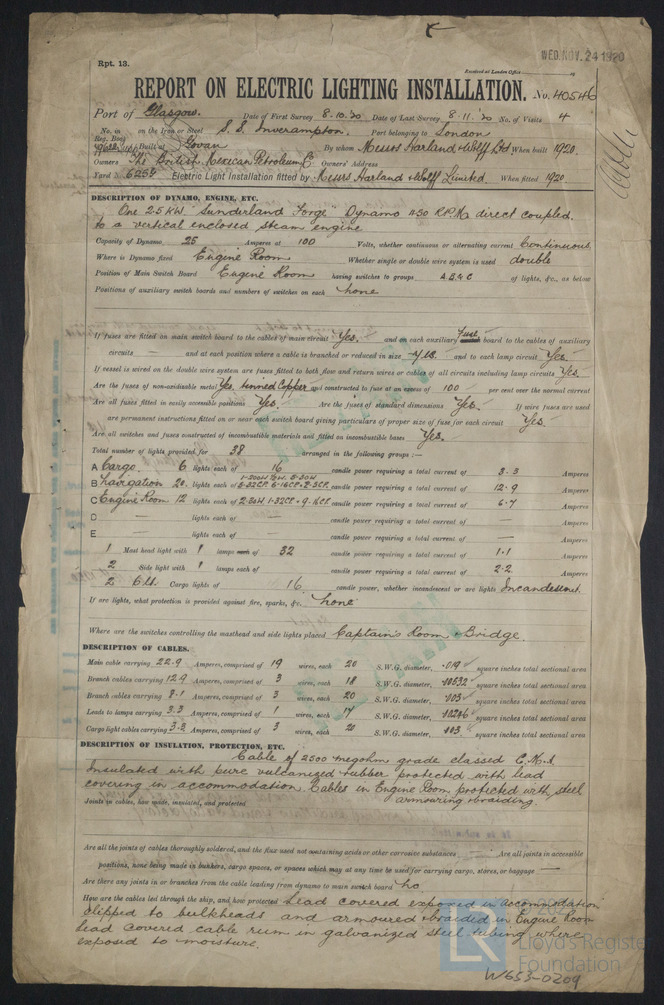 Rpt. 13.
WED. NOV. 24 1920
Received at London Office
REPORT ON ELECTRIC LIGHTING INSTALLATION. No. 40546
Port of Glasgow. Date of First Survey 8.10.20 Date of Last Survey 8.11.20 No. of Visits 4
No. in Reg. Book on the Iron or Steel S.S. Inverampton. Port belonging to London
Built at Govan By whom Messrs Harland & Wolff Ltd When built 1920.
Owners The British Mexican Petroleum Co Owners' Address
Yard No. 6257 Electric Light Installation fitted by Messrs Harland & Wolff Limited When fitted 1920.
DESCRIPTION OF DYNAMO, ENGINE, ETC.
One 25 KW. "Sunderland Forge" Dynamo 450 R.P.M. direct coupled
to a vertical enclosed steam engine
Capacity of Dynamo 25 Amperes at 100 Volts, whether continuous or alternating current Continuous.
Where is Dynamo fixed Engine Room Whether single or double wire system is used double
Position of Main Switch Board Engine Room having switches to groups A.B & C of lights, &c., as below
Positions of auxiliary switch boards and numbers of switches on each none
If fuses are fitted on main switch board to the cables of main circuit Yes. and on each auxiliary Fuse board to the cables of auxiliary
circuits — and at each position where a cable is branched or reduced in size Yes. and to each lamp circuit Yes.
If vessel is wired on the double wire system are fuses fitted to both flow and return wires or cables of all circuits including lamp circuits Yes.
Are the fuses of non-oxidizable metal Yes, tinned Copper and constructed to fuse at an excess of 100 per cent over the normal current
Are all fuses fitted in easily accessible positions Yes. Are the fuses of standard dimensions Yes. If wire fuses are used
are permanent instructions fitted on or near each switch board giving particulars of proper size of fuse for each circuit Yes.
Are all switches and fuses constructed of incombustible materials and fitted on incombustible bases Yes.
Total number of lights provided for 38 arranged in the following groups :—
A Cargo. 6 lights each of 16 candle power requiring a total current of 3.3 Amperes
B Navigation 20. lights each of 5-32CP. 6-16CP & 2-5CP. candle power requiring a total current of 12.9 Amperes
C Engine Room 12 lights each of 2-30W. 1-32CP & 9-16CP. candle power requiring a total current of 6.7 Amperes
D lights each of — candle power requiring a total current of — Amperes
E — lights each of — candle power requiring a total current of — Amperes
1 Mast head light with 1 lamps each of 32 candle power requiring a total current of 1.1 Amperes
2 Side light with 1 lamps each of candle power requiring a total current of 2.2 Amperes
2 6 Lt. Cargo lights of 16 candle power, whether incandescent or arc lights Incandescent.
If arc lights, what protection is provided against fire, sparks, &c. none
Where are the switches controlling the masthead and side lights placed Captain's Room & Bridge.
DESCRIPTION OF CABLES.
Main cable carrying 22.9 Amperes, comprised of 19 wires, each 20 S.W.G. diameter, .019 square inches total sectional area
Branch cables carrying 12.9 Amperes, comprised of 3 wires, each 18 S.W.G. diameter, .00532 square inches total sectional area
Branch cables carrying 8.1 Amperes, comprised of 3 wires, each 20 S.W.G. diameter, .003 square inches total sectional area
Leads to lamps carrying 3.3 Amperes, comprised of 1 wires, each 17 S.W.G. diameter, .00246 square inches total sectional area
Cargo light cables carrying 3.3 Amperes, comprised of 3 wires, each 20 S.W.G. diameter, .003 square inches total sectional area
DESCRIPTION OF INSULATION, PROTECTION, ETC.
Cable of 2500 megohm grade classed C.M.A.
Insulated with pure vulcanized rubber protected with lead
covering in accommodation. Cables in Engine Room protected with steel
armouring & braiding.
Joints in cables, how made, insulated, and protected
Are all the joints of cables thoroughly soldered, and the flux used not containing acids or other corrosive substances — Are all joints in accessible
positions, none being made in bunkers, cargo spaces, or spaces which may at any time be used for carrying cargo, stores, or baggage —
Are there any joints in or branches from the cable leading from dynamo to main switch board No.
How are the cables led through the ship, and how protected Lead covered exposed in accommodation
clipped to bulkheads and armoured & braided in Engine Room
lead covered cable run in galvanized steel tubing where
exposed to moisture.
LR
© 2021
Lloyd's Register
Foundation
W653-0209